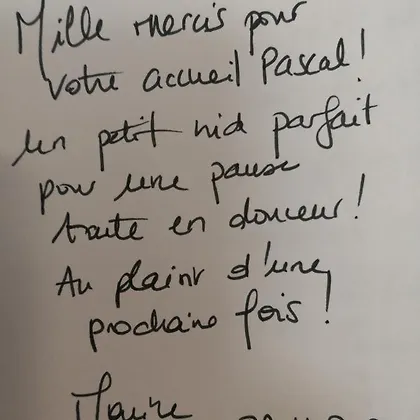 Mille mercis pour
votre accueil Pascal !
Un petit nid parfait
pour une pause
toute en douceur !
Au plaisir d'une
prochaine fois !